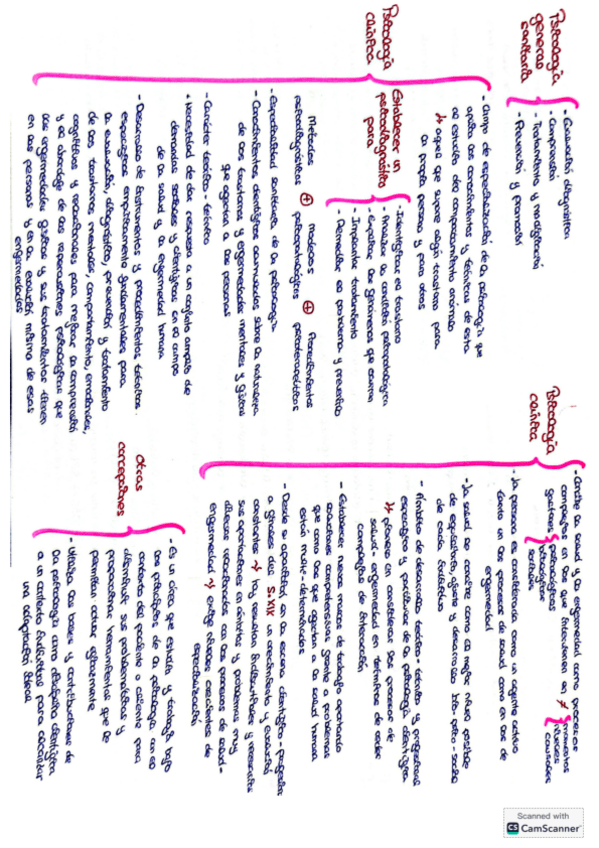 Psicología
general
sanitaria
- Evaluación diagnóstica
- Comprensión
- Tratamiento y rehabilitación
- Prevención y promoción
Psicología
clínica
- Campo de especialización de la psicología que
aplica los conocimientos y técnicas de esta
al estudio del comportamiento anómalo
↳ aquel que supone algún trastorno para
la propia persona y para otros
Establecer un
psicodiagnóstico
para
- Identificar el trastorno
- Analizar la condición psicopatológica
- Implantar tratamiento
Métodos
psicodiagnósticos
⊕
modelos
psicopatológicos
⊕
Procedimientos
psicoterapéuticos
- Especialidad sanitaria de la psicología
- Conocimientos científicos acumulados sobre la naturaleza
de los trastornos y enfermedades mentales y físicas
que afectan a las personas
- Carácter teórico - técnico
- Necesidad de dar respuesta a un conjunto amplio de
demandas sociales y científicas en el campo
de la salud y la enfermedad humana
- Desarrollo de instrumentos y procedimientos técnicos
específicos empíricamente fundamentados para
la evaluación, diagnóstico, prevención y tratamiento
de los trastornos mentales, comportamiento, emociones,
cognitivos y relacionales para mejorar la comprensión
y el abordaje de las repercusiones psicológicas que
las enfermedades físicas y sus tratamientos tienen
en las personas y en la evolución misma de esas
enfermedades
Psicología
clínica
- Concibe la salud y la enfermedad como procesos
complejos en los que intervienen en ≠ momentos
niveles
causales
factores
psicológicos
biológicos
sociales
- La persona es considerada como un agente activo
tanto en los procesos de salud como en los de
enfermedad
- La salud se concibe como el mejor nivel posible
de equilibrio, ajuste y desarrollo bio-psico-social
de cada individuo
- Ámbito de desarrollo teórico-técnico y profesional
específico y particular de la psicología científica
↳ pionera en considerar los procesos de
salud - enfermedad en términos de redes
complejas de interacción
- Establecer nuevos marcos de trabajo aportando
soluciones comprensivas frente a problemas
que como los que afectan a la salud humana
están multi-determinados
- Desde su aparición en la escena científico-profesional
a finales del S.XIX un crecimiento y evolución
constantes → hoy resultan indiscutibles y necesarias
sus aportaciones en ámbitos y problemas muy
diversos relacionados con los procesos de salud-
enfermedad → exige niveles crecientes de
especialización
Otras
concepciones
- Es un área que estudia y trabaja bajo
los principios de la psicología en el
contexto del paciente o cliente para
disminuir sus problemáticas y
proporcionar herramientas que le
permitan actuar eficazmente
- Utiliza las bases y contribuciones de
la psicología como disciplina científica
a un contexto individual para
una adaptación
Scanned with
CS CamScanner